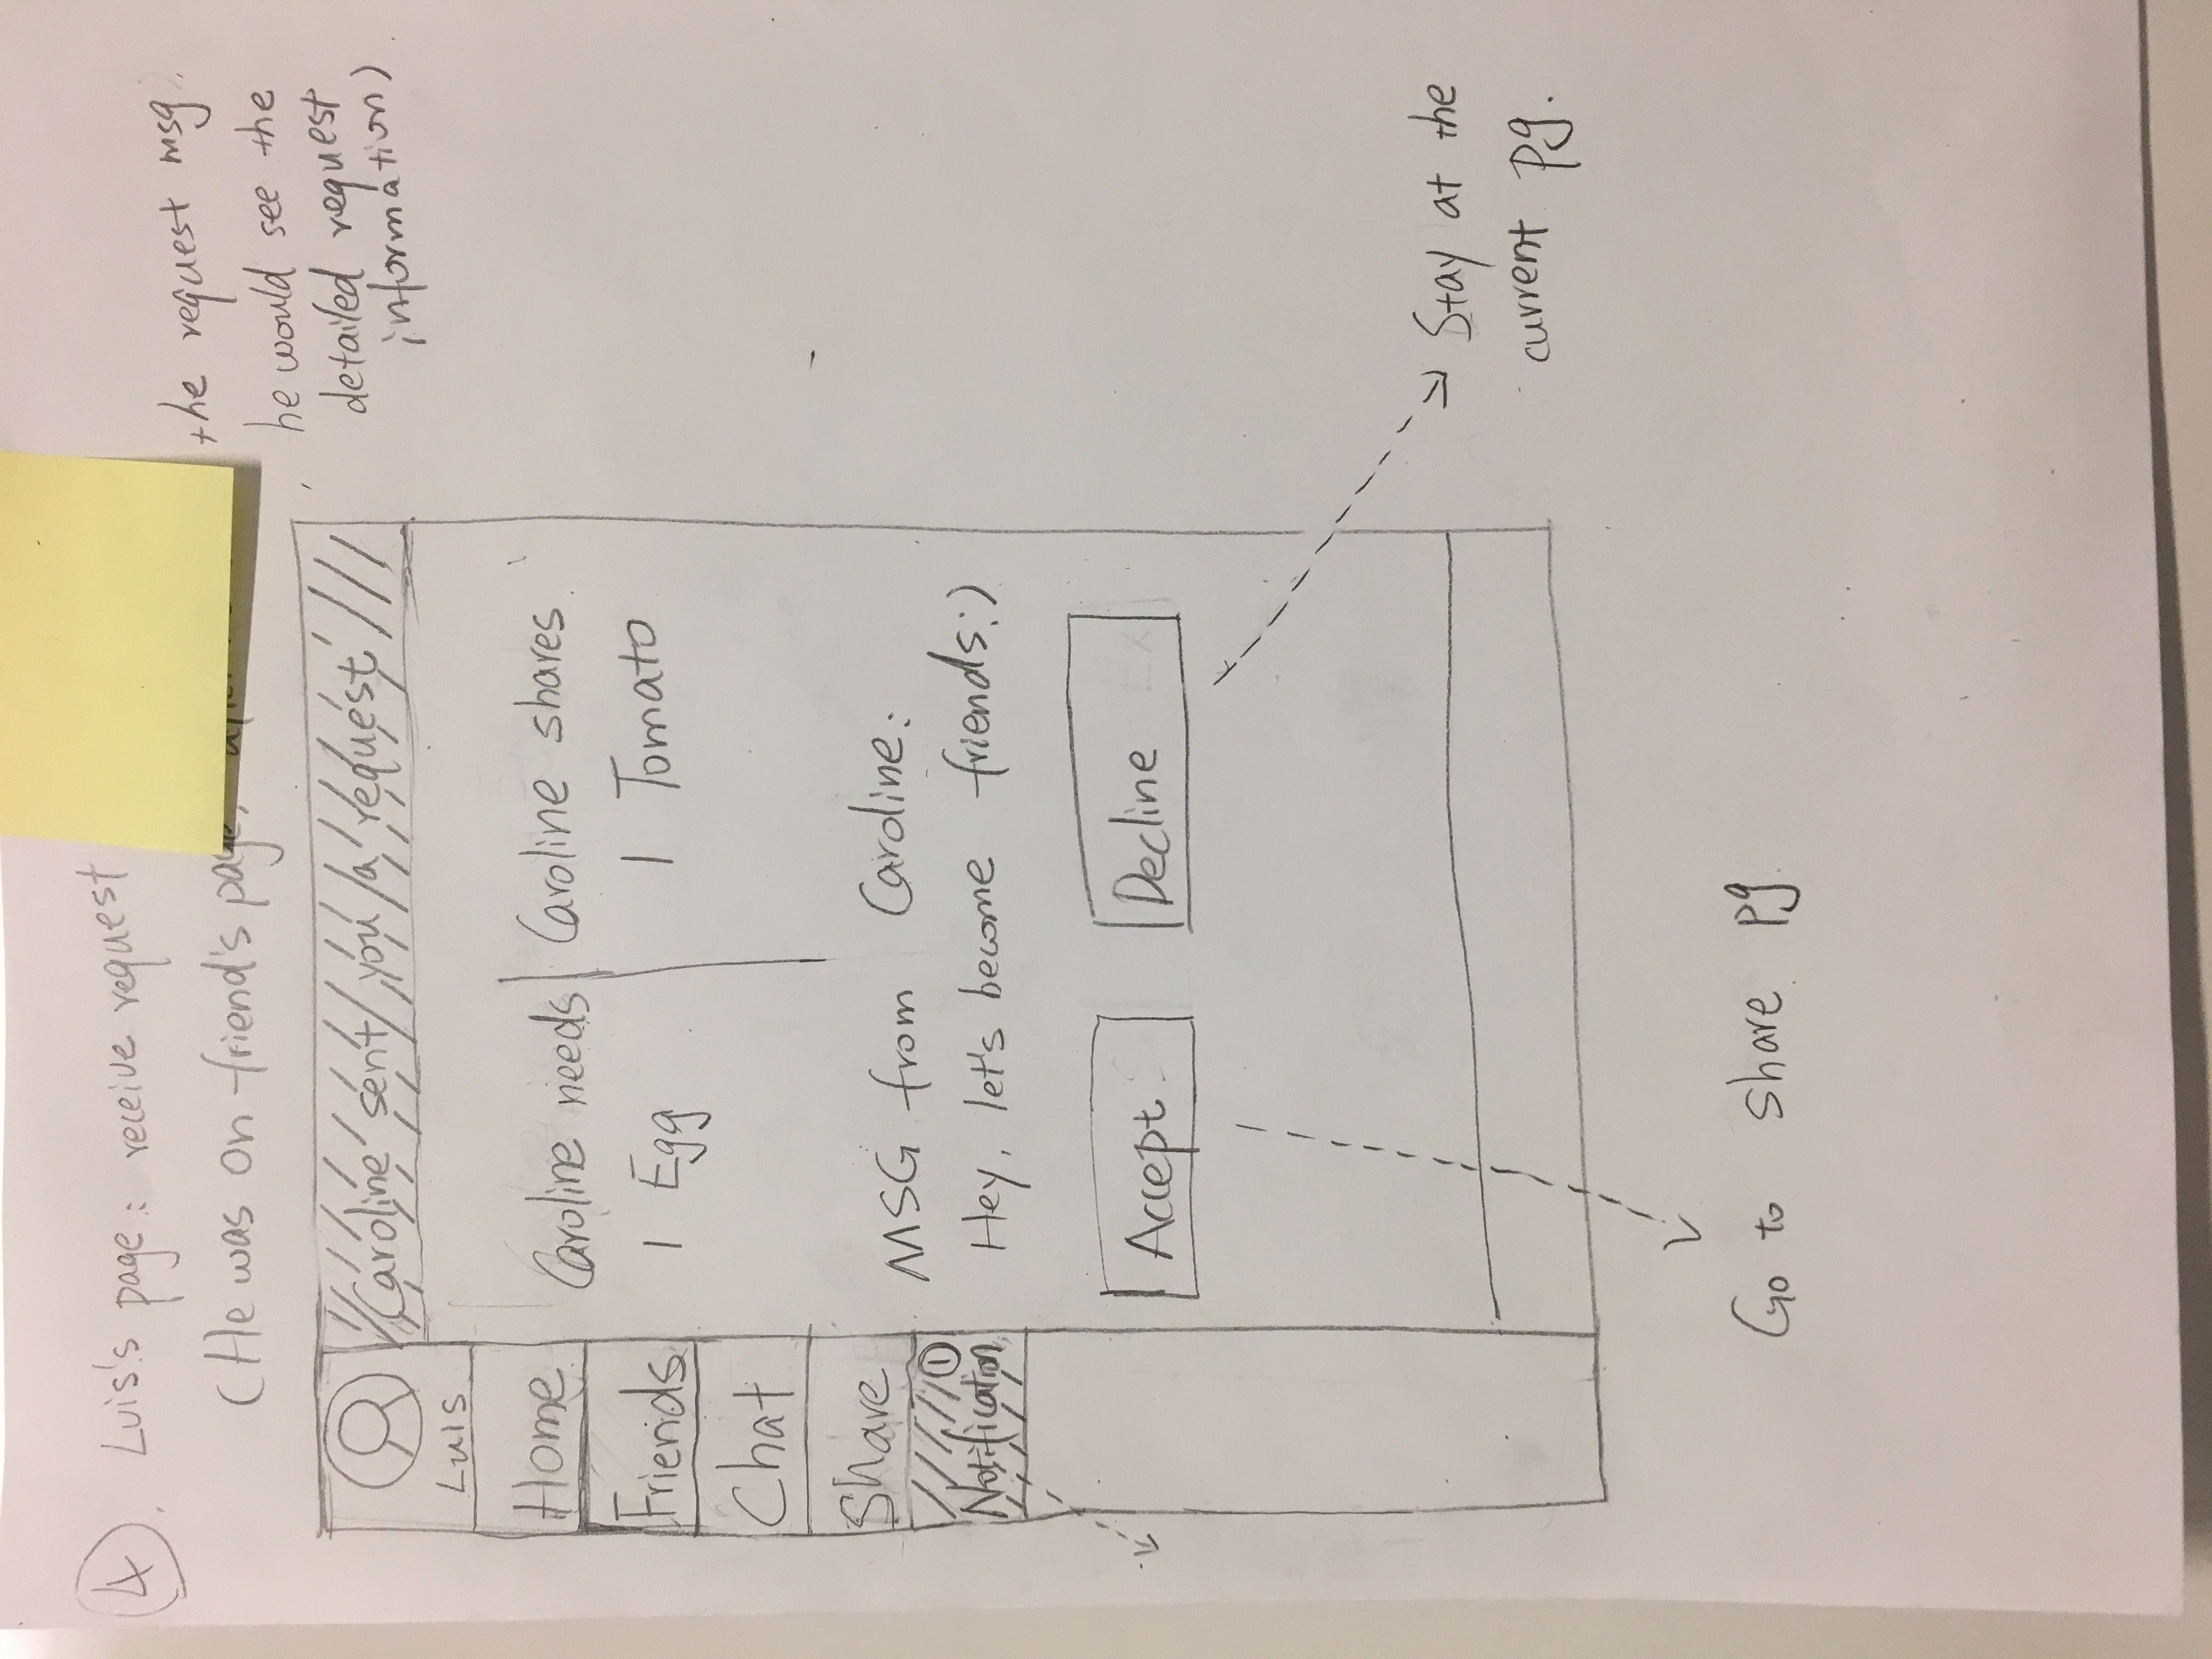 4. Luis's page: receive request
(He was on friend's page, after
the request msg,
he would see the
detailed request
information)
Caroline sent you a request
Luis
Home
Friends
Chat
Share
1
Notification
Caroline needs
1 Egg
Caroline shares
1 Tomato
MSG from Caroline:
Hey, let's become friends:)
Accept
Decline
Stay at the
current pg.
Go to share pg.